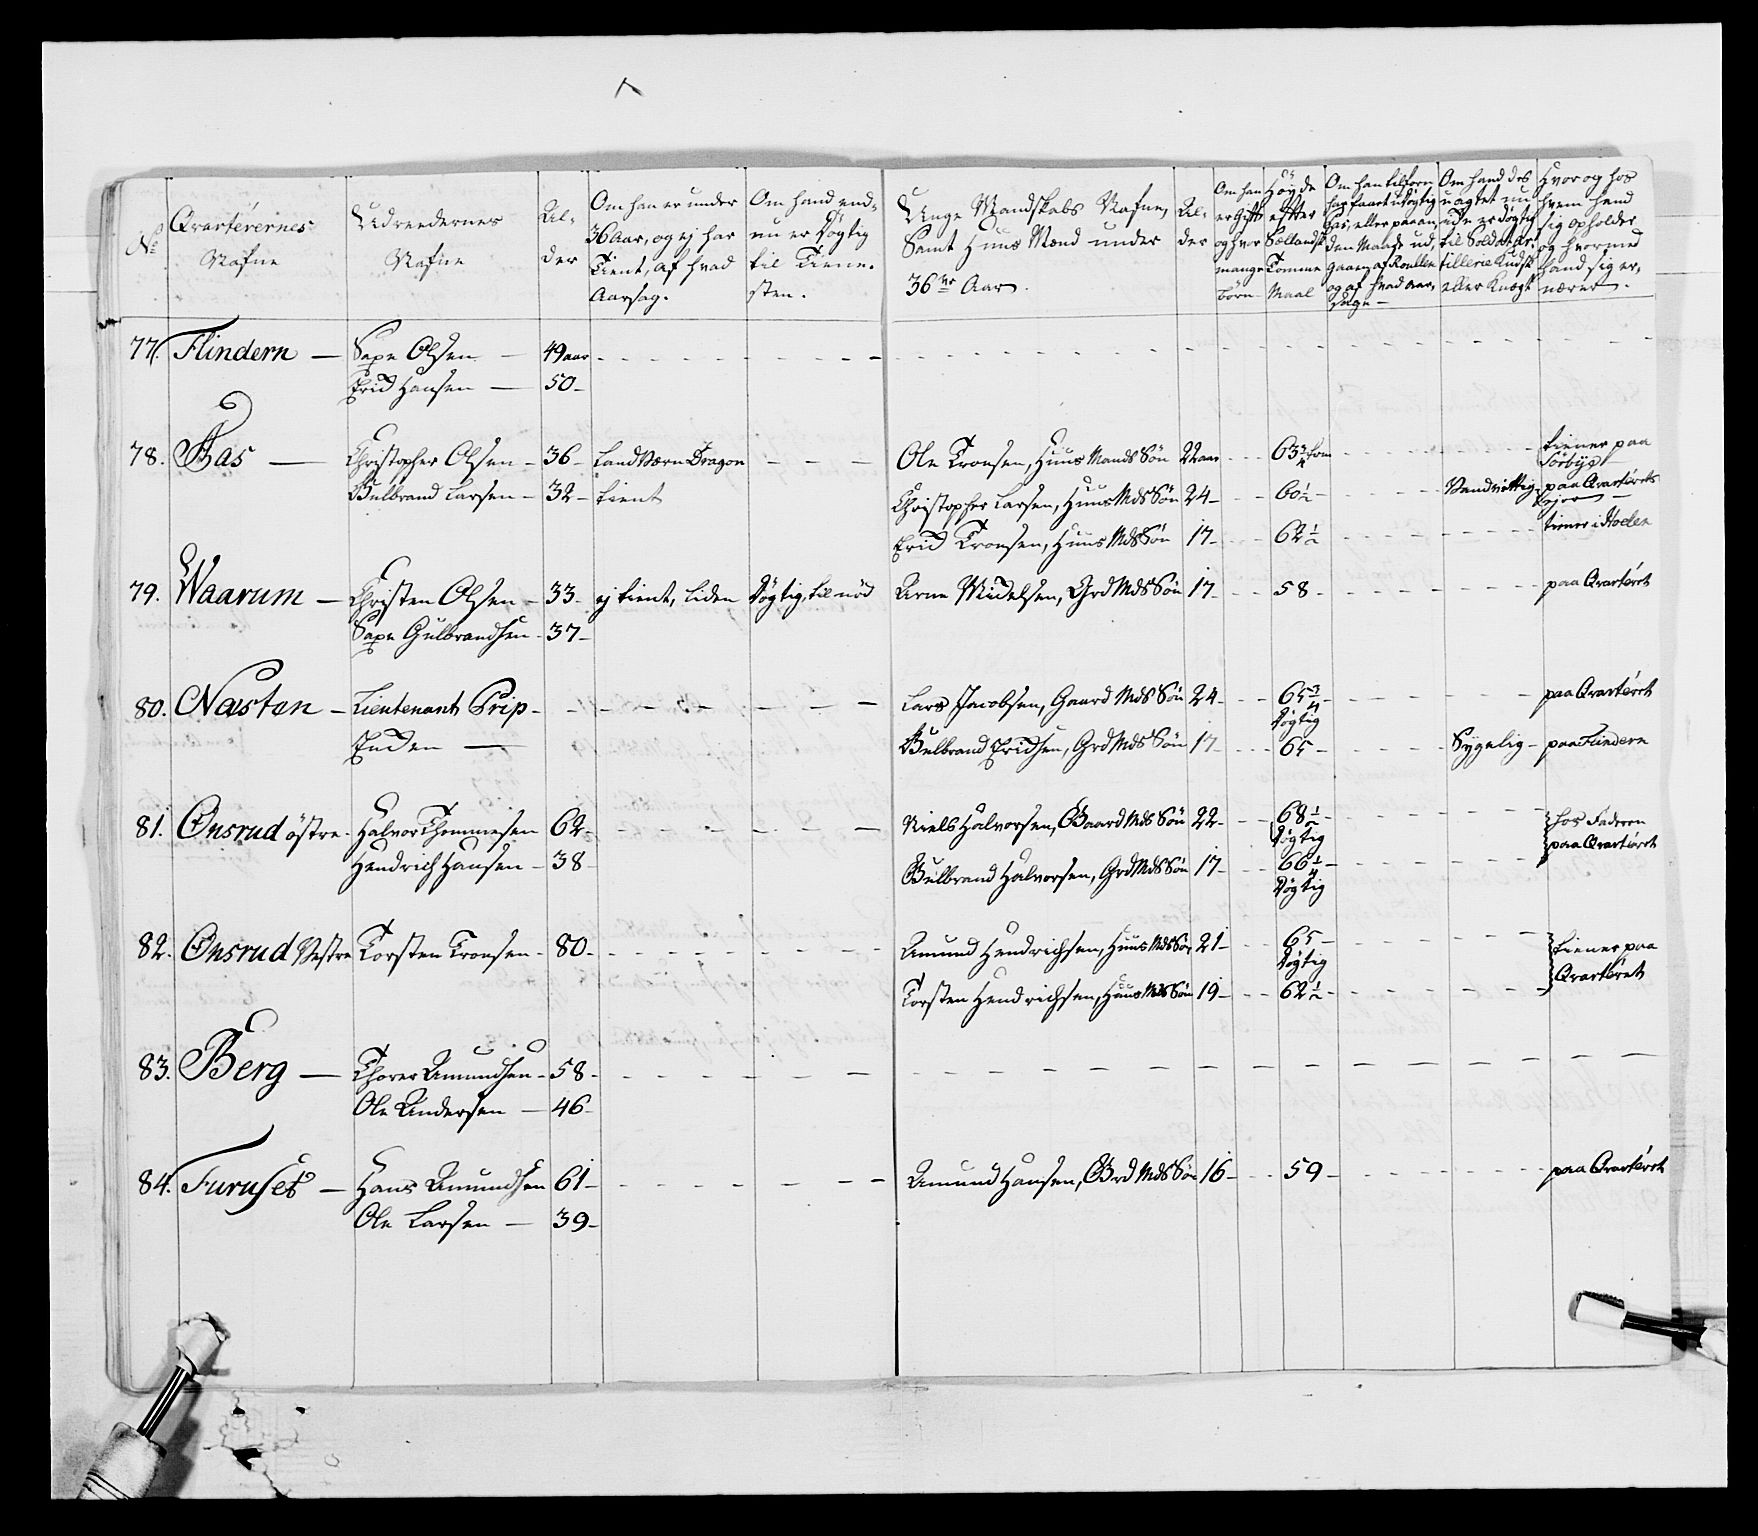 No
Qvarterernes
Nafne
Udreedernes
Nafne
Al-
der
Om han er under
36 Aar, og ej har
Tient, af hvad
Aarsag.
Om hand end-
nu er Døgtig
til Tiene-
sten.
Unge Mandskabs Nafne,
Samt Huus Mænd under
36te Aar.
Al-
der
Om han
er Gift
og hvor
mange
børn
Høyde
efter
Sællandsk
Tomme
Maal
Om han tilforn
har faaet udygtig
Pas, eller paa an-
den Maade ud-
gaaen af Roullen
og af hvad aar-
sage
Om hand des
uagtet nu
ude er døgtig
til Soldat Ar-
tillerie Kudsk
eller Knegt
Hvor og hos
hvem hand
sig opholder
og hvormed
hand sig er-
nærer.
77. Flindern — Sexe Olsen — 49 aar
Erich Hansen — 50 -
78. Aas — Christopher Olsen - 36 - Land Værn Dragon Ole Tronsen, Huus Mands Søn 22 aar 63 3/4 tom tiener paa
Sørbye
Gulbrand Larsen - 32 - tient Christopher Larsen, Huus Mds Søn 24 - 60 1/2 - Vandvittig - paa Qvarterets
Ejer
Erich Tronsen, Huus Mds Søn 17 - 62 1/2 tiener i Holen
79. Waarum — Christen Olsen - 33 - ej tient, liden Døgtig, til nød Arne Michelsen, Grd Mds Søn 17 - 58 - paa Qvarteret
Sexe Gulbrandsen - 37 -
80. Næsten — Lieutenant Prip - Lars Jacobsen, Gaard Mds Søn 24 - 65 3/4 paa Qvarteret
Døgtig
Enken — Gulbrand Erichsen, Grd Mds Søn 17 - 65 - Sygelig - paa Flindern
81. Onsrud østre - Halvor Thommesen 62 - Niels Halvorsen, Gaard Mds Søn 22 - 68 1/2 - hos Faderen
Døgtig paa Qvarteret
Hendrich Hansen - 38 - Gulbrand Halvorsen, Grd Mds Søn 17 - 66 1/4 -
Døgtig
82. Onsrud Vestre Torsten Tronsen - 80 - Amund Hendrichsen, Huus Mds Søn 21 - 65 - tiener paa
Døgtig Qvarteret
Torsten Hendrichsen, Huus Mds Søn 19 - 62 1/2 -
83. Berg — Thorer Amundsen - 58 -
Ole Andersen — 46 -
84. Furuset — Hans Amundsen 61 - Amund Hansen, Grd Mds Søn 16 - 59 - paa Qvarteret
Ole Larsen — 39 -